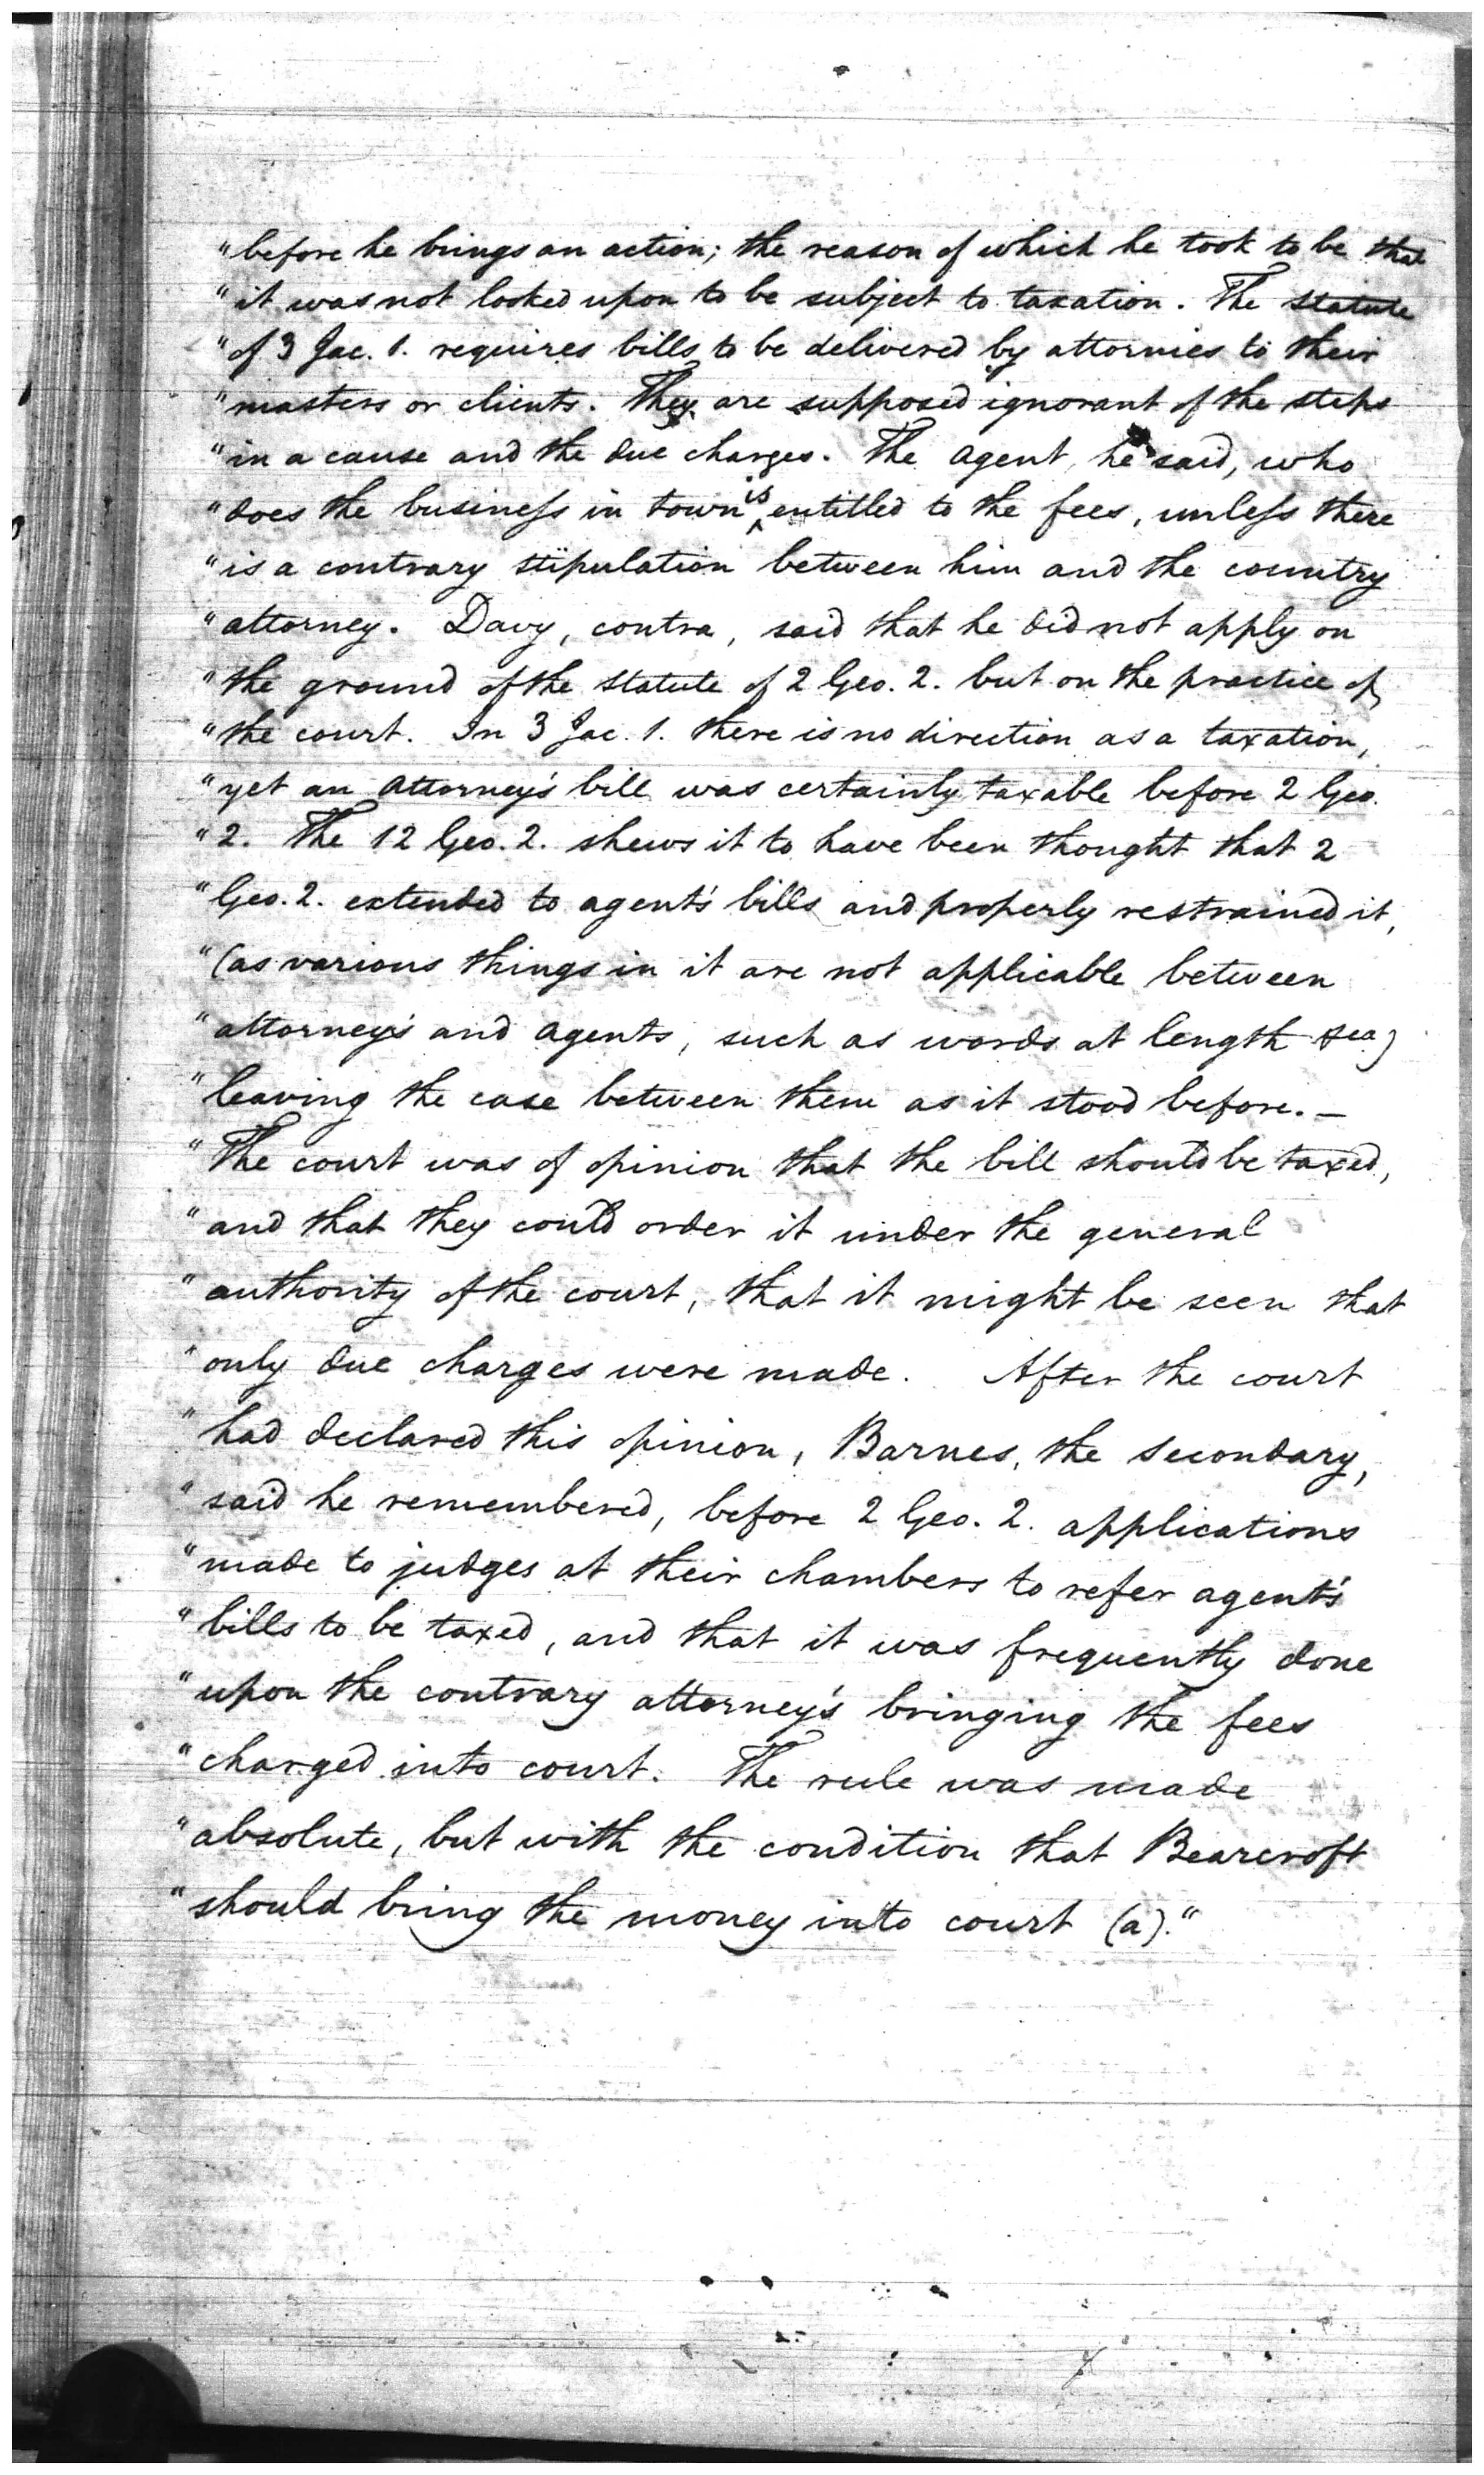 "before he brings an action; the reason of which he took to be that
"it was not looked upon to be subject to taxation. The statute
"of 3 Jac. 1. requires bills to be delivered by attornies to their
"masters or clients. They are supposed ignorant of the steps
"in a cause and the due charges. The agent, he said, who
"does the business in town is entitled to the fees, unless there
"is a contrary stipulation between him and the country
"attorney. Davy, contra, said that he did not apply on
"the ground of the statute of 2 Geo. 2. but on the practice of
"the court. In 3 Jac. 1. there is no direction as a taxation,
"yet an attorney's bill was certainly taxable before 2 Geo.
"2. The 12 Geo. 2. shews it to have been thought that 2
"Geo. 2. extended to agent's bills and properly restrained it,
"(as various things in it are not applicable between
"attorney's and agents, such as words at length &ca)
"leaving the case between them as it stood before.—
"The court was of opinion that the bill should be taxed,
"and that they could order it under the general
"authority of the court, that it might be seen that
"only due charges were made. After the court
"had declared this opinion, Barnes, the secondary,
"said he remembered, before 2 Geo. 2. applications
"made to judges at their chambers to refer agent's
"bills to be taxed, and that it was frequently done
"upon the contrary attorney's bringing the fees
"charged into court. The rule was made
"absolute, but with the condition that Bearcroft
"should bring the money into court (a)."